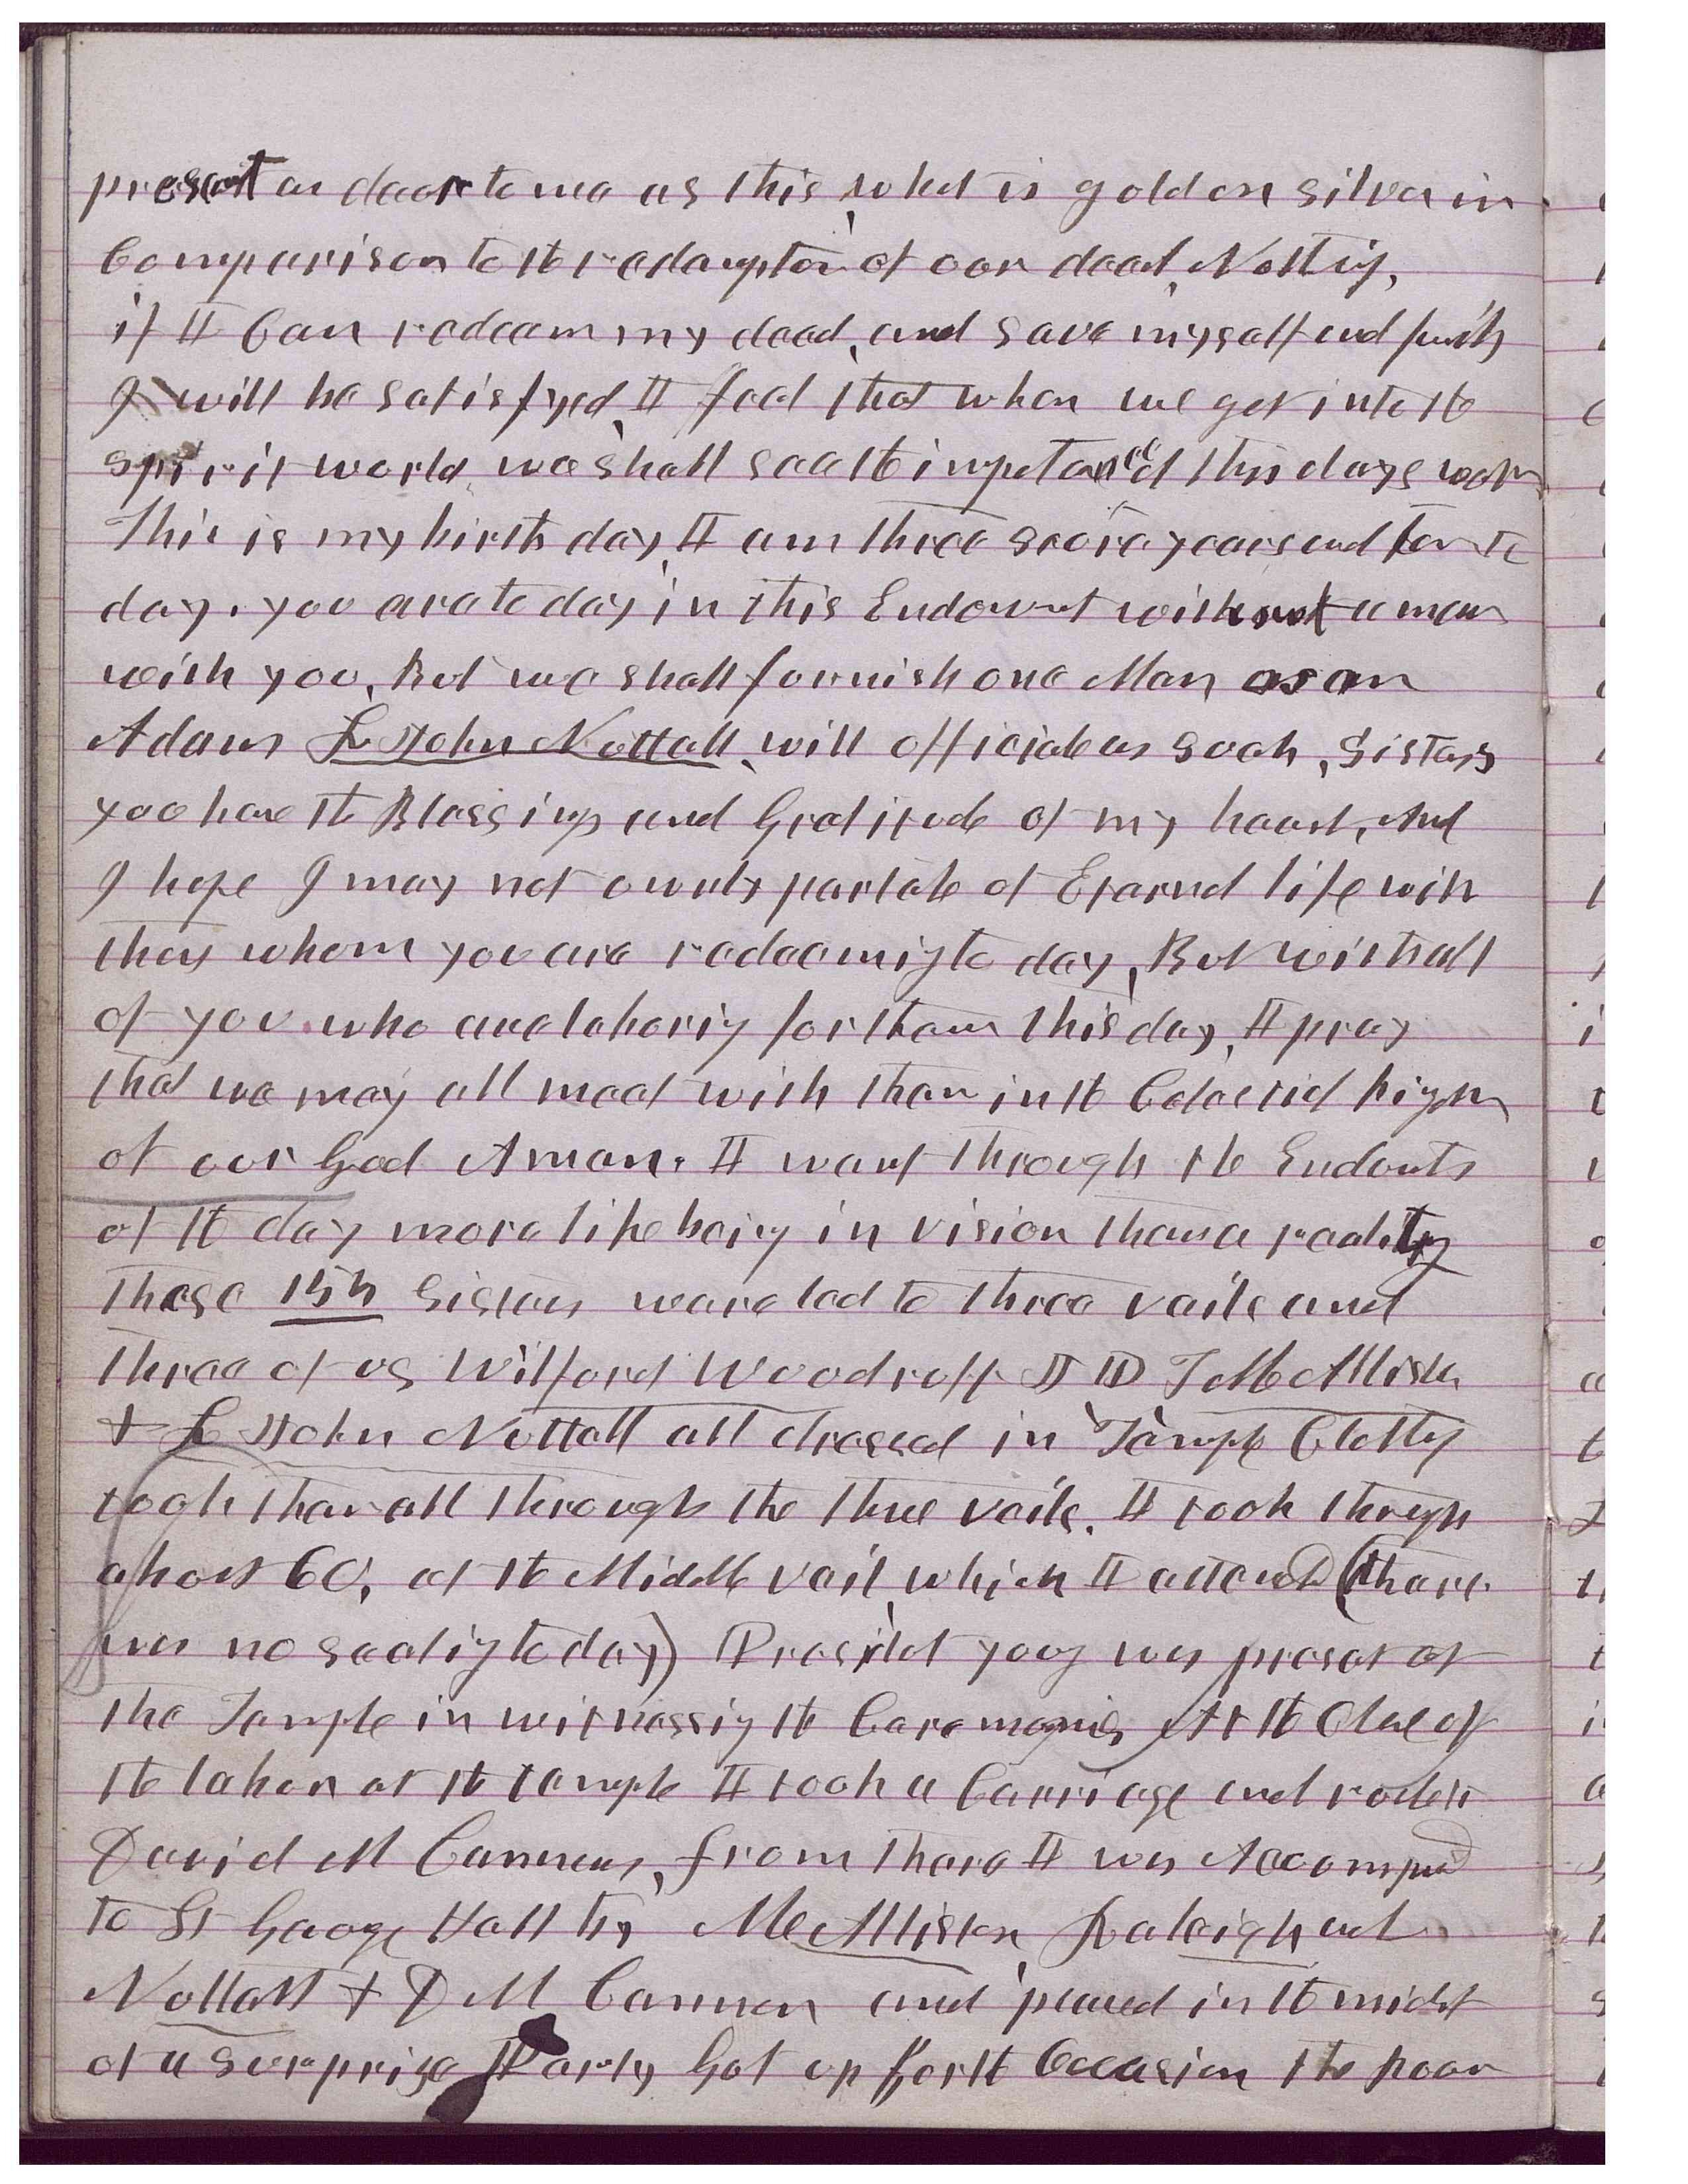 present as dear to me as this, what is gold or silver in
Comparison to the redemption of our dead, Nothing,
if I Can redeem my dead, and save myself and family
I will be satisfyed, I feel that when we get into the
spirit world we shall see the importance of this days work
This is my birth day, I am three score years and ten to
day. you are to day in this Endowmt without a man
with you, But we shall furnish one Man as an
Adam L John Nuttall, will officiate as such, Sisters
you have the Blessings and Gratitude of my heart, And
I hope I may not ownly partake of Eternal life with
they whom you are redeeming to day, But with all
of you who are laboring for them this day, I pray
that we may all meet with them in the Celestial kigdm
of our God Amen. I went through the Endowts
of the day more like being in vision than a reality
These 154 Sisters were led to three vails and
three of us Wilford Woodruff J D T McAllister
& L John Nuttall all dressed in Temple Clothing
took them all through the three vails. I took through
about 60, at the Middle vail which I attended (there
was no sealing to day) Presidet Young was preset at
the Temple in witnessing the Ceremonies At the Close of
the labor at the temple I took a Carriage and rode to
David M Cannons, from there I was Accompanied
to St George Hall by McAllister, Raleigh and
Nuttall & D M Cannon and placed in the midst
of a Surprize Party Got up for the Occasion The poor